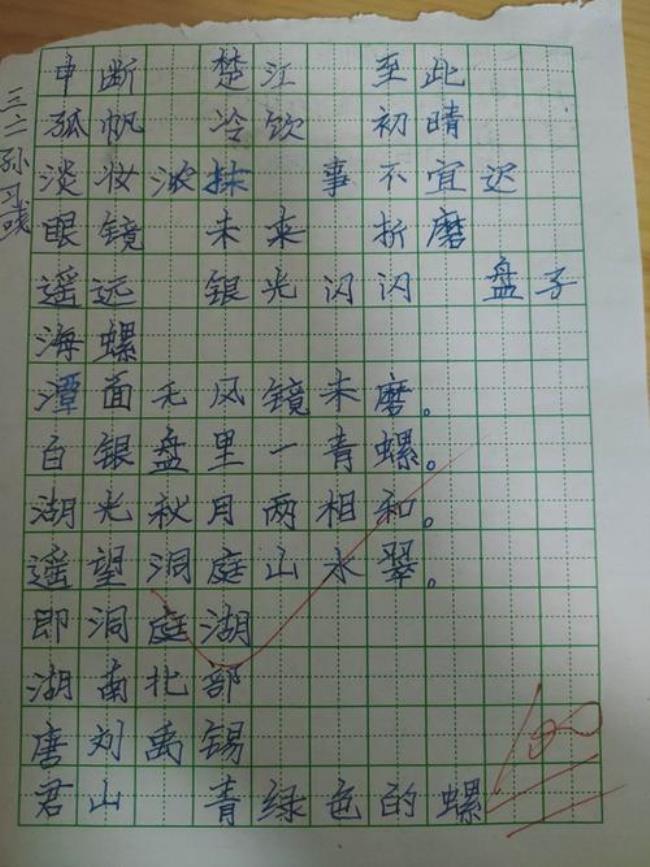 三二 孙习彧
申断 楚江 至此
孤帆 冷饮 初晴
淡妆浓抹 事不宜迟
眼镜 未来 折磨
遥远 银光闪闪 盘子
海螺
潭面无风镜未磨。
白银盘里一青螺。
湖光秋月两相和。
遥望洞庭山水翠。
即洞庭湖
湖南北部
唐刘禹锡
君山 青绿色的螺
100